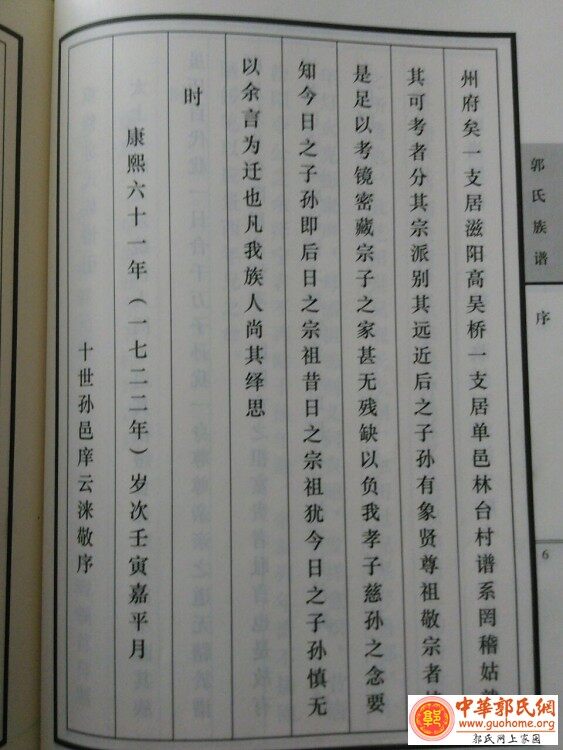 州府矣一支居滋阳高吴桥一支居单邑林台村谱系罔稽姑
其可考者分其宗派别其远近后之子孙有象贤尊祖敬宗者
是足以考镜密藏宗子之家甚无残缺以负我孝子慈孙之念要
知今日之子孙即后日之宗祖昔日之宗祖犹今日之子孙慎无
以余言为迂也凡我族人尚其绎思
时
康熙六十一年（一七二二年）岁次壬寅嘉平月
十世孙邑庠云涞敬序
郭氏族谱
序
6
中華郭氏網
www.guohome.org
郭氏网上家园